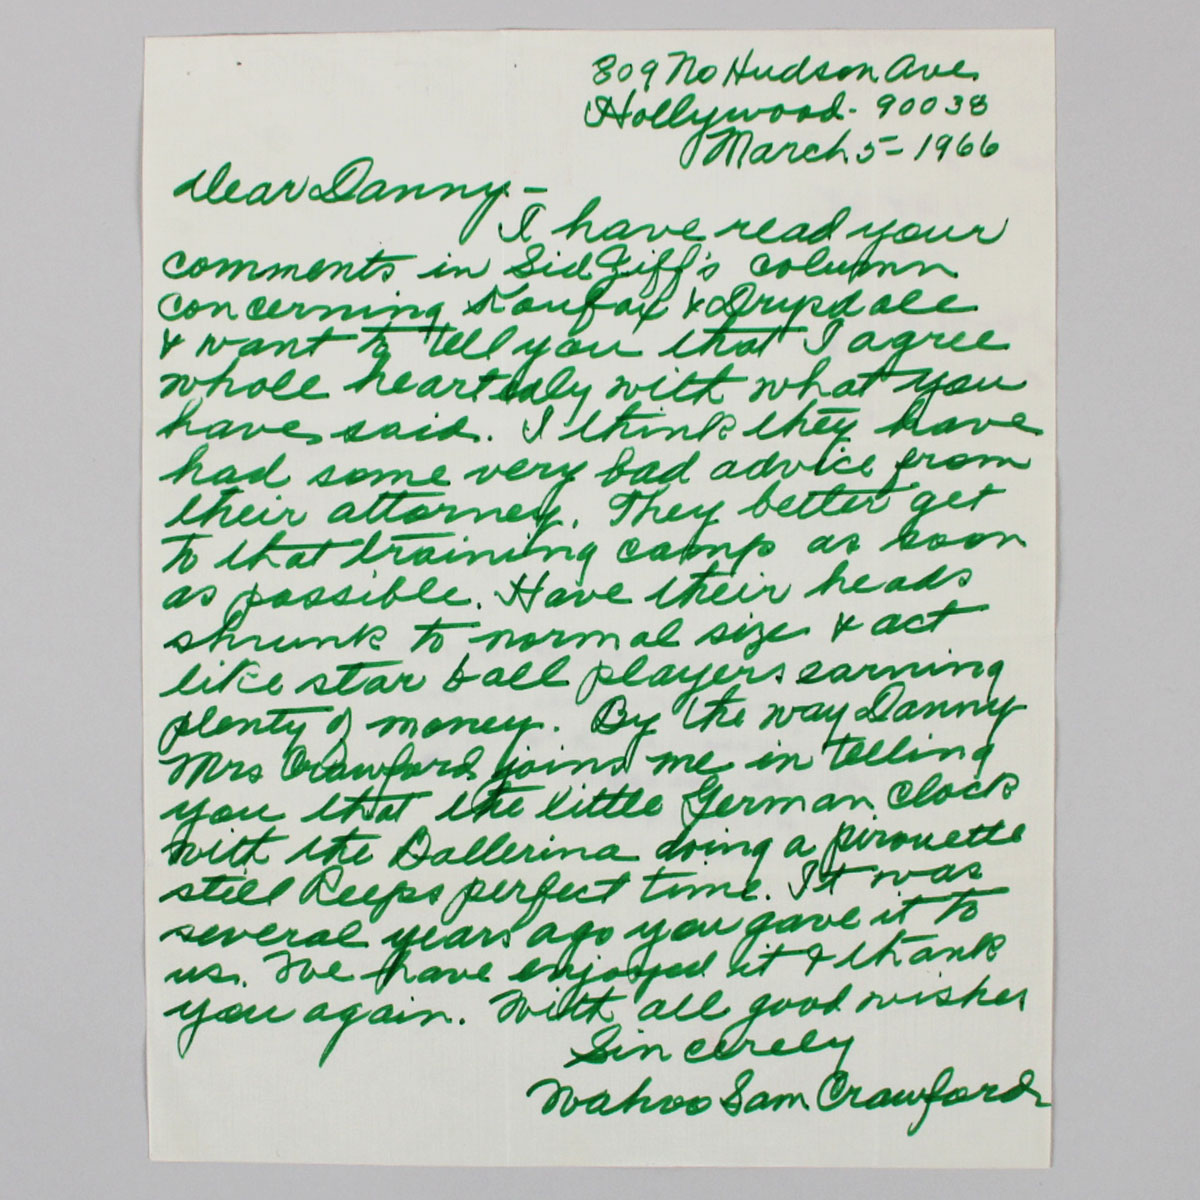 809 No Hudson Ave.
Hollywood - 90038
March 5 - 1966
Dear Danny -
I have read your
comments in Sid Ziff's column
concerning Koufax & Drysdale
& want to tell you that I agree
whole heartedly with what you
have said. I think they have
had some very bad advice from
their attorney. They better get
to that training camp as soon
as possible. Have their heads
shrunk to normal size & act
like star ball players earning
plenty of money. By the way Danny
Mrs Crawford joins me in telling
you that the little German clock
with the Ballerina doing a pirouette
still keeps perfect time. It was
several years ago you gave it to
us. We have enjoyed it & thank
you again. With all good wishes
Sincerely
Wahoo Sam Crawford